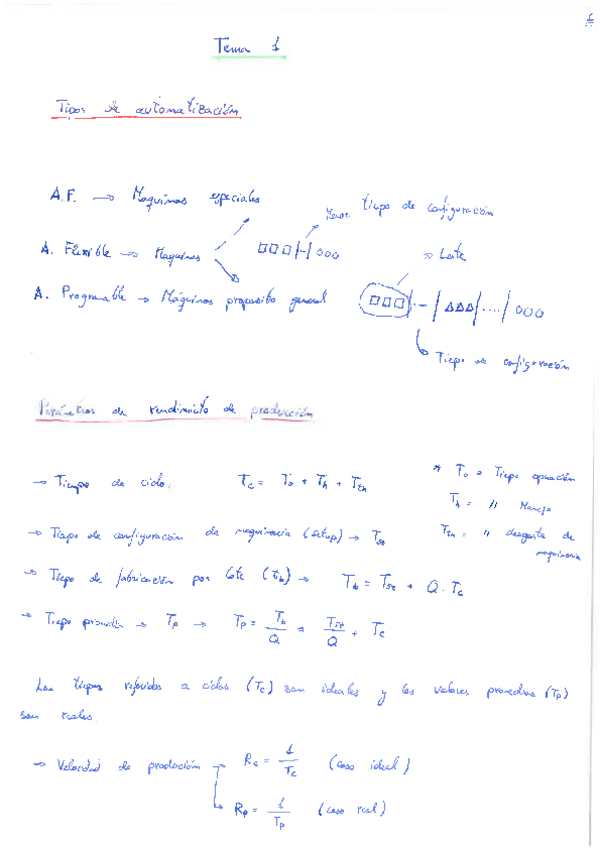 1
Tema 1
Tipos de automatización
A.F. → Maquinas especiales
Tiempo de configuración
A. Flexible → Maquinas
□□□|-|○○○
⇒ Lote
A. Programable → Máquinas proposito general
□□□|-|△△△|....|○○○
Tiepo de configuración
Parámetros de rendimiento de producción
→ Tiempo de ciclo: Tc = To + Th + Tth
* To = Tiepo operación
Th = // Manejo
Tth = // desgaste de maquinaria
→ Tiepo de configuración de maquinaria (setup) → Tst
→ Tiepo de fabricación por lote (tb) → Tb = Tst + Q · Tc
→ Tiepo promedio → Tp → Tp = Tb/Q = Tst/Q + Tc
Los tiepos referidos a ciclos (Tc) son ideales y los valores promedios (Tp)
son reales.
→ Velocidad de producción → Rc = 1/Tc (caso ideal)
Rp = 1/Tp (caso real)